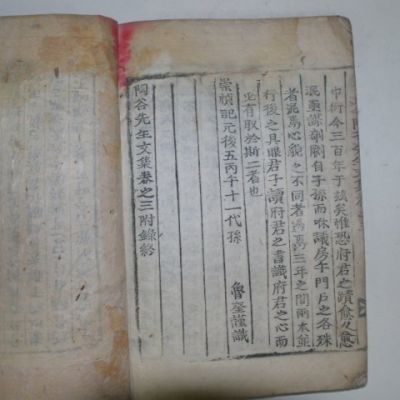 巾衍今三百年于玆矣惟恐府君之蹟愈久愈
泯亟謀剞劂自子孫而咏議房千門戶之各殊
者兆爲心貌之不同者爲萬三年之間兩本並
行後之具眼君子讀府君之書識府君之心而
必有取於斯二者也
崇禎記元後五丙午十一代孫
魯奎謹識
陶谷先生文集卷之三附錄終